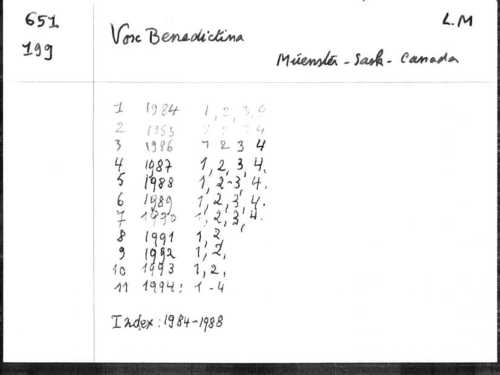 651
199
L.M
Vox Benedictina
Müenster - Sask - Canada
1 1984 1, 2, 3, 4
2 1985 1 2 3 4
3 1986 1 2 3 4
4 1987 1, 2, 3, 4.
5 1988 1, 2-3, 4.
6 1989 1, 2, 3, 4.
7 1990 1, 2, 3, 4.
8 1991 1, 2,
9 1992 1, 2,
10 1993 1, 2,
11 1994: 1-4
Index: 1984-1988